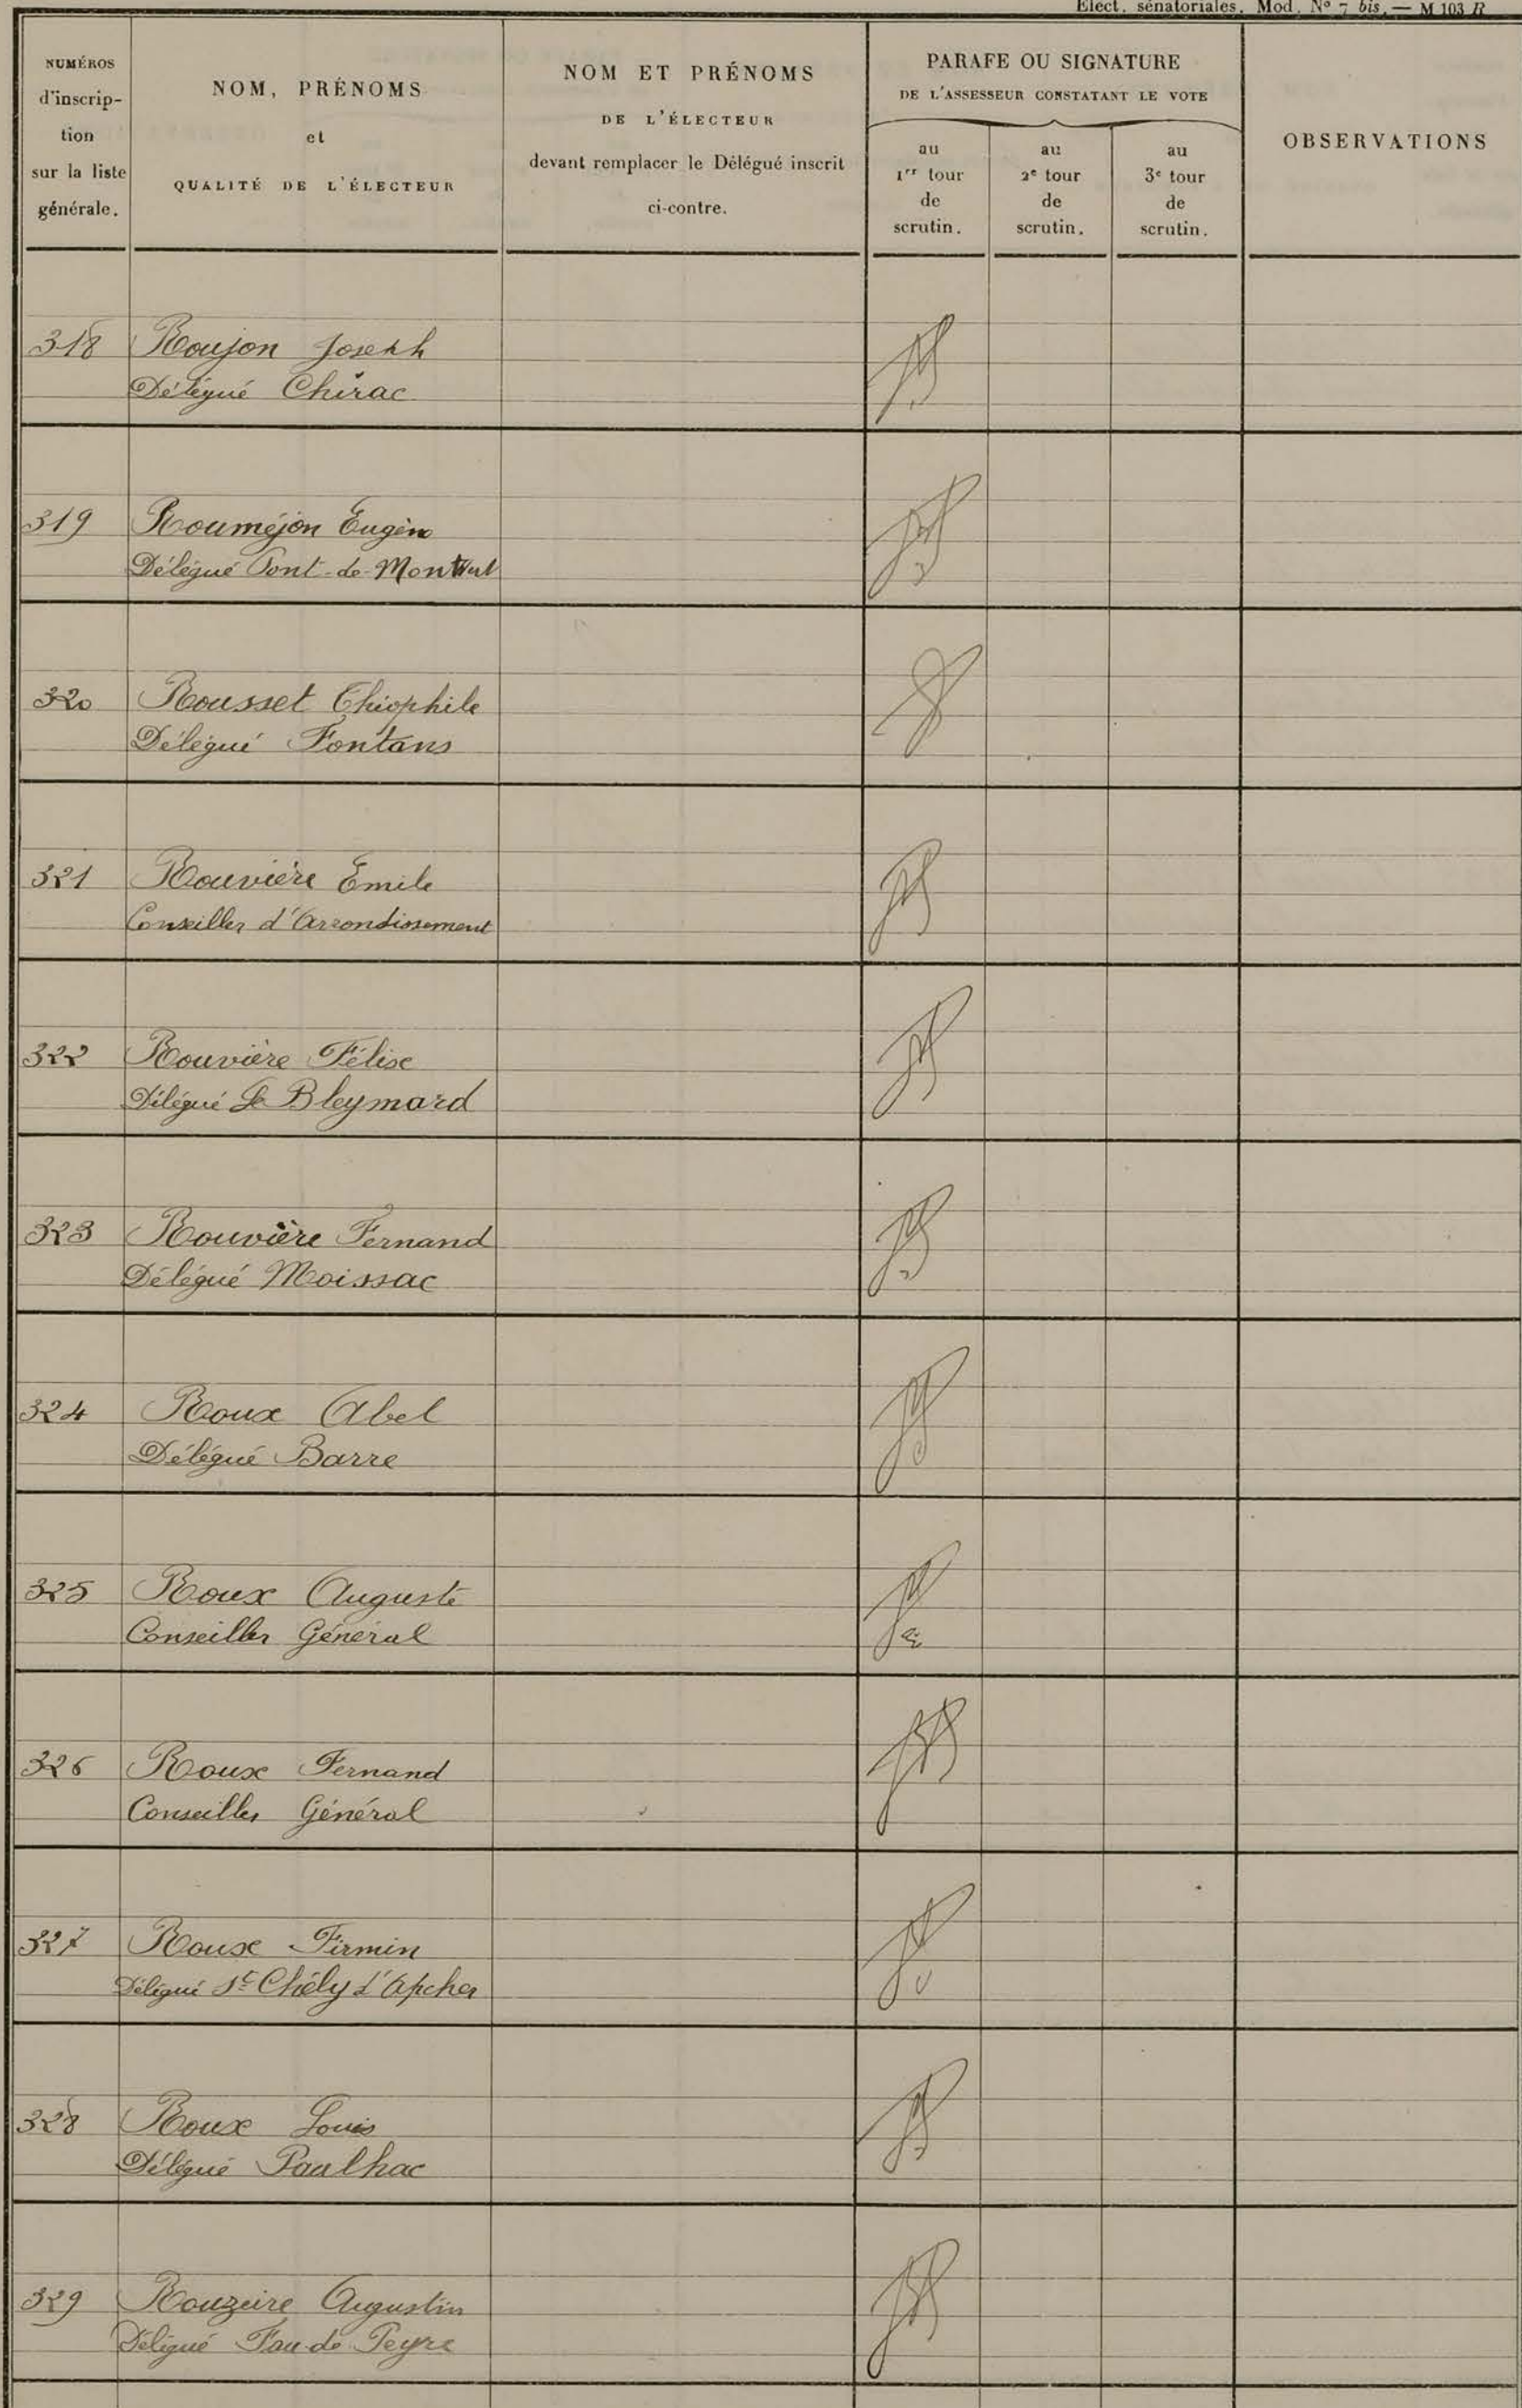 Elect. sénatoriales. Mod. N° 7 bis. — M 103 R
NUMÉROS
d'inscrip-
tion
sur la liste
générale.
NOM, PRÉNOMS
et
QUALITÉ DE L'ÉLECTEUR
NOM ET PRÉNOMS
DE L'ÉLECTEUR
devant remplacer le Délégué inscrit
ci-contre.
PARAFE OU SIGNATURE
DE L'ASSESSEUR CONSTATANT LE VOTE
au
1er tour
de
scrutin.
au
2e tour
de
scrutin.
au
3e tour
de
scrutin.
OBSERVATIONS
318 Roujon Joseph
Délégué Chirac
319 Rouméjon Eugène
Délégué Pont-de-Montvert
320 Rousset Théophile
Délégué Fontans
321 Rouvière Emile
Conseiller d'Arrondissement
322 Rouvière Félix
Délégué Le Bleymard
323 Rouvière Fernand
Délégué Moissac
324 Roux Abel
Délégué Barre
325 Roux Auguste
Conseiller Général
326 Roux Fernand
Conseiller Général
327 Roux Firmin
Délégué St Chély d'Apcher
328 Roux Louis
Délégué Paulhac
329 Rouzeire Augustin
Délégué Fau de Peyre